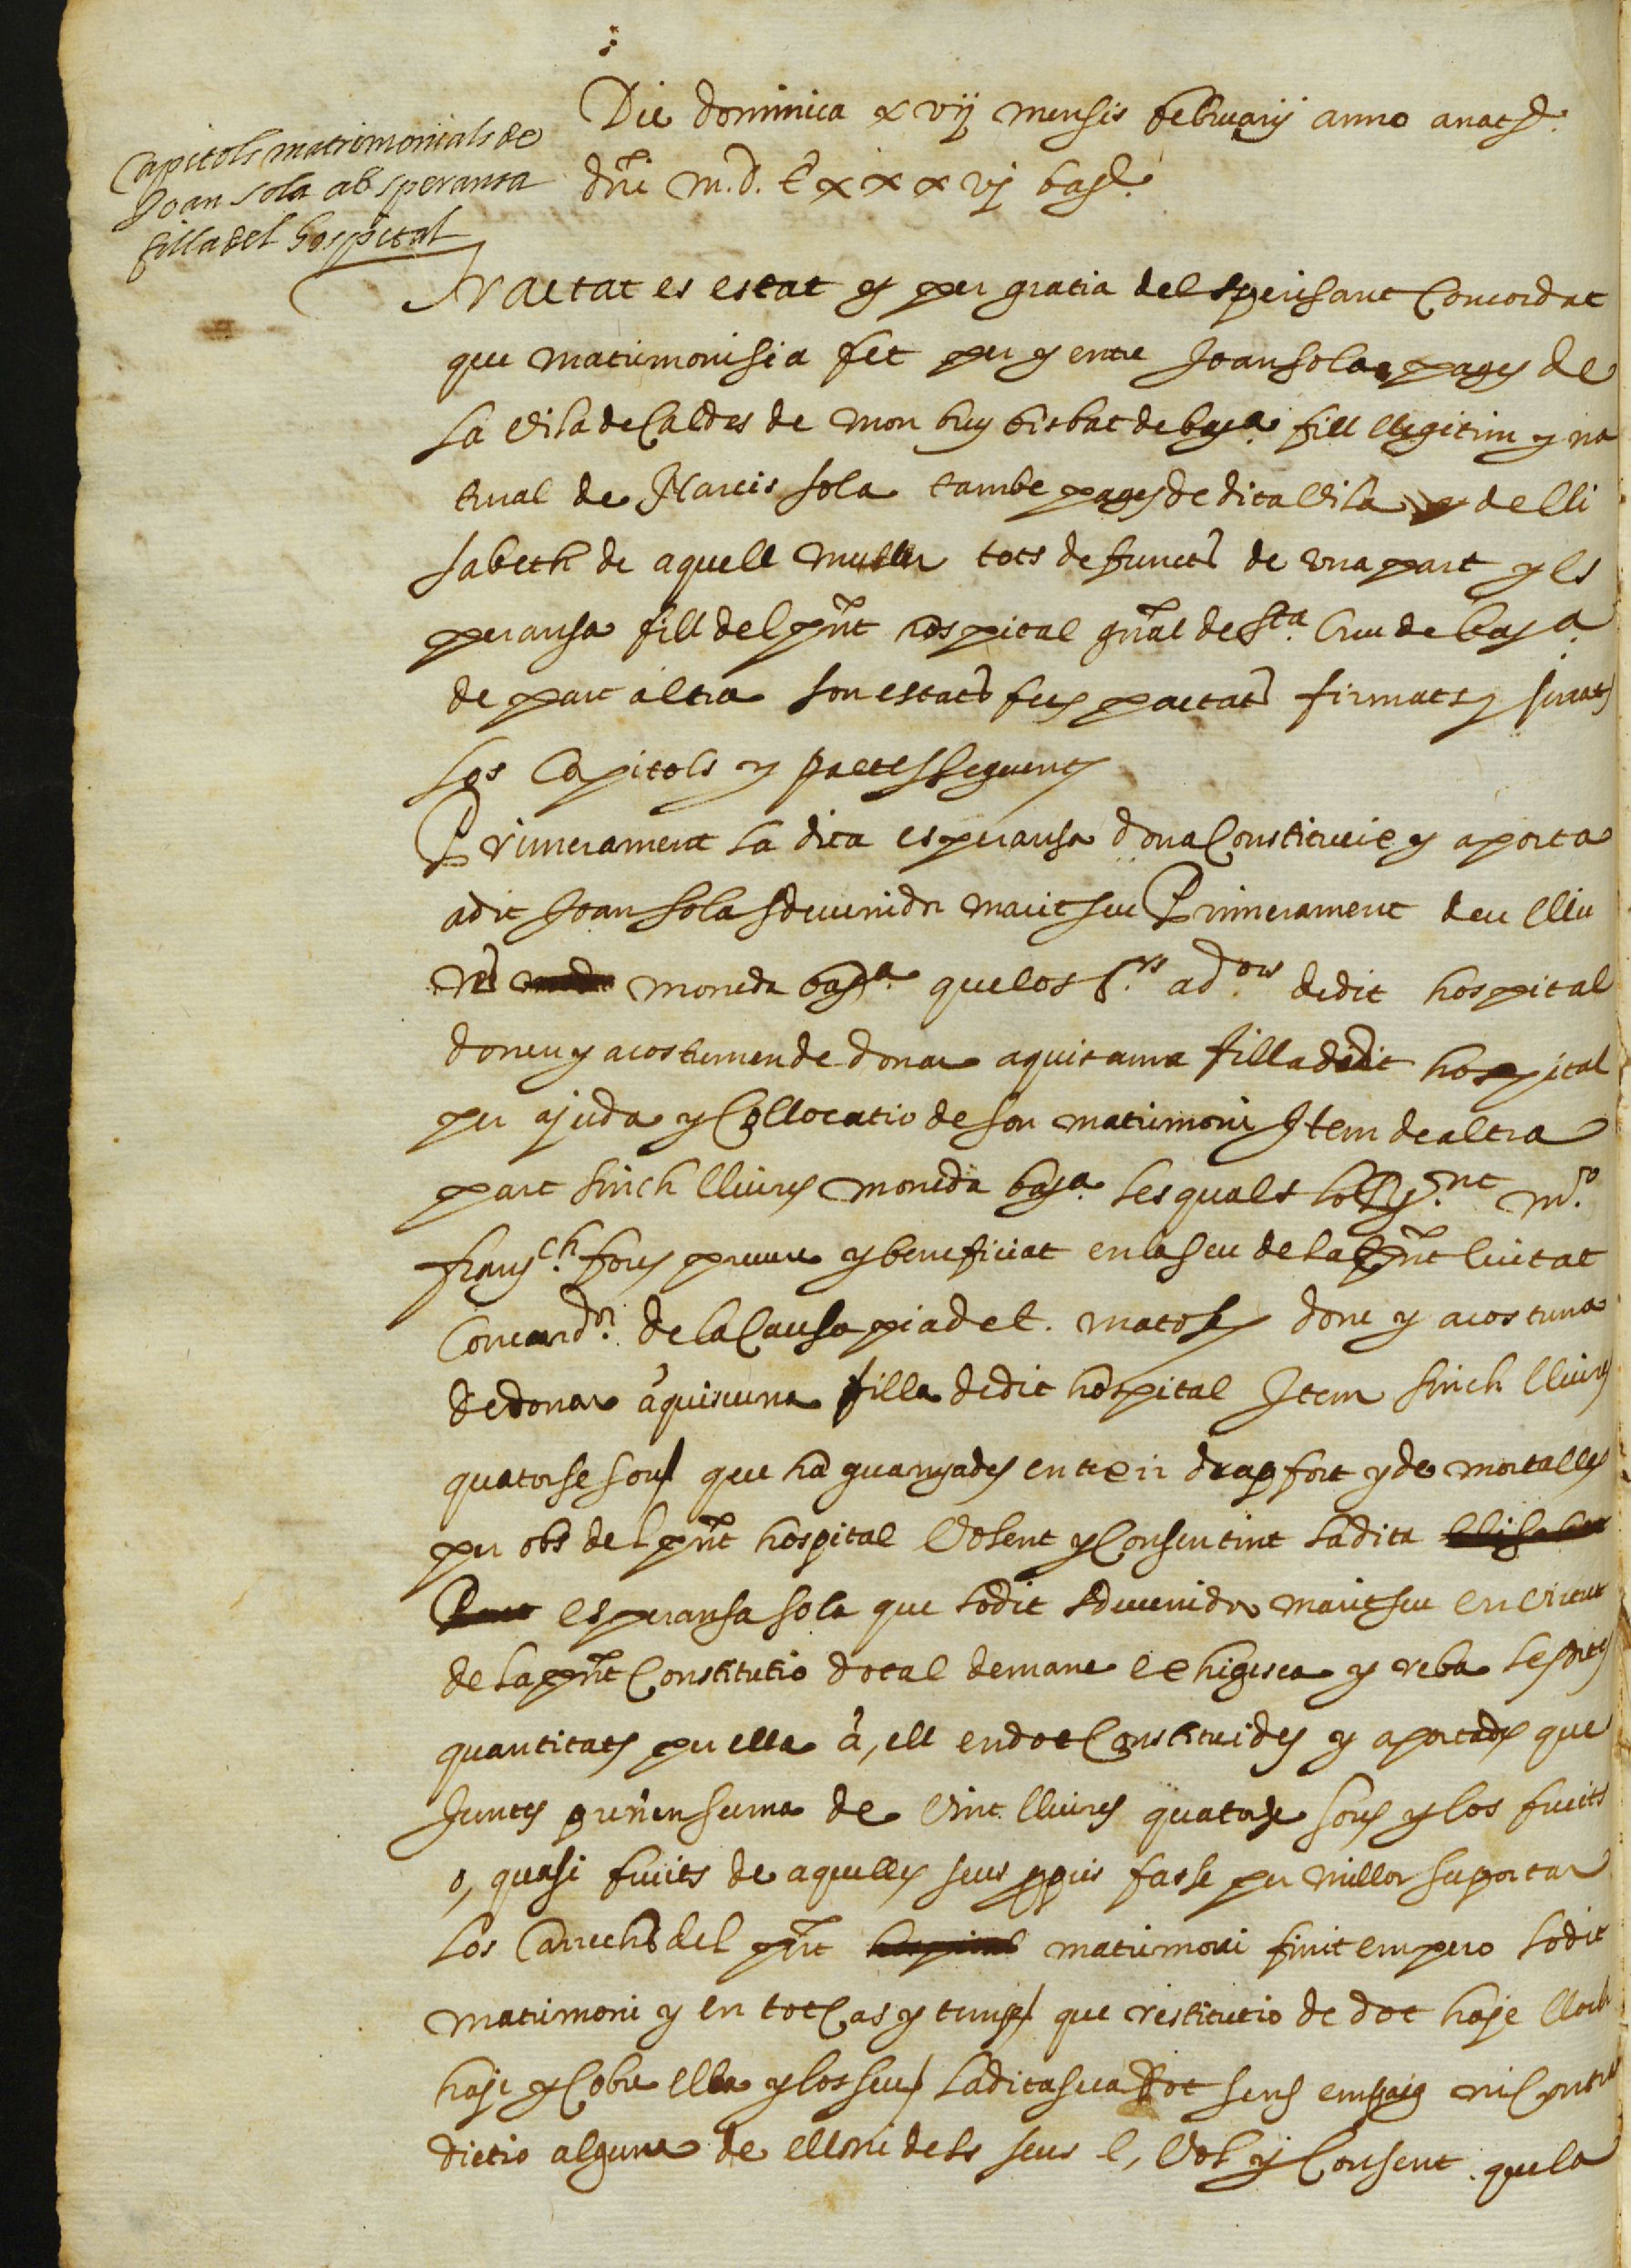 Capitols matrimonials de
Joan sola ab speransa
filla del hospital
Die dominica xvij mensis februarij anno a nat.e d.
dñi m.d. Lxxxvj bar.e
Tractat es estat y per gratia del sperit sanct Concordat
que matrimoni sia fet per y entre Joan sola pages de
la vila de Caldes de mon buy bisbat de bar.a fill llegitim y na
tural de Narcis sola tambe pages de dita vila y de Eli
sabeth de aquell muller tots defuncts de una part y es
peransa fill del pñt hospital gñal de S.ta Creu de bar.a
de part altra son estats fets pactats firmats y jurats
los Capitols y pactes seguents
Primerament la dita esperansa dona Constitueix y aporta
a dit Joan sola sdevenidor marit seu Primerament deu lliu
res moneda bar.a que los s.rs ad.ors de dit hospital
donen y acostumen de donar a quiscuna filla de dit hospital
per ajuda y Collocatio de son matrimoni Item de altra
part sinch lliures moneda bar.a les quals lo R.nt m.o
frans.ch fores prevere y beneficiat en la seu de la pñt Ciutat
de la Causa pia de t. matoses done y acostuma
de donar à quiscuna filla de dit hospital Item sinch lliures
quatorse sous que ha guanyades en texir drap fort y de mortalles
per obs del pñt hospital Volent y Consentint la dita
esperansa sola que lo dit sdevenidor marit seu en virtut
de la pñt Constitutio dotal demane exhigesca y reba les dites
quantitats per ella à, ell en dot Constituides y aportades que
juntes prenen suma de vint lliures quatorse sous y los fruits
o, quasi fruits de aquelles seus propis fasse per millor suportar
los Carrechs del pñt matrimoni finit empero lo dit
matrimoni y en tot Cas y temps que restitutio de dot haje lloch
haje y Cobre ella y los seus la dita sua dot sens empaig ni Contra
dictio alguna de ell ni dels seus e, Vol y Consent que la